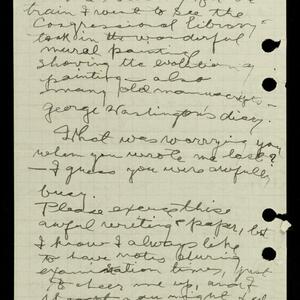 train I went to see the
Congressional Library -
took in the wonderful
mural painting
showing the evolution of
painting - also
many old manuscripts -
George Washington's diary.
What was worrying you
when you wrote me last?
- I guess you were awfully
busy.
Please excuse this
awful writing & paper, but
I know I always like
to have notes during
examination times, just
to cheer me up, and I
thought you might